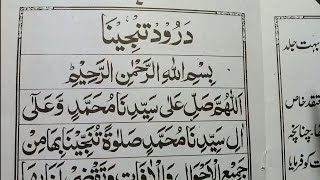 درود تنجینا
بِسْمِ اللهِ الرَّحْمٰنِ الرَّحِيْمِ
اَللّٰهُمَّ صَلِّ عَلٰى سَيِّدِنَا مُحَمَّدٍ وَّعَلٰٓى
اٰلِ سَيِّدِنَا مُحَمَّدٍ صَلٰوةً تُنَجِّيْنَا بِهَا مِنْ
جَمِيْعِ الْاَهْوَالِ وَالْاٰفَاتِ وَتَقْضِىْ لَنَا بِهَا
بہت جلد
خاص
چنانچہ
کو فرمایا